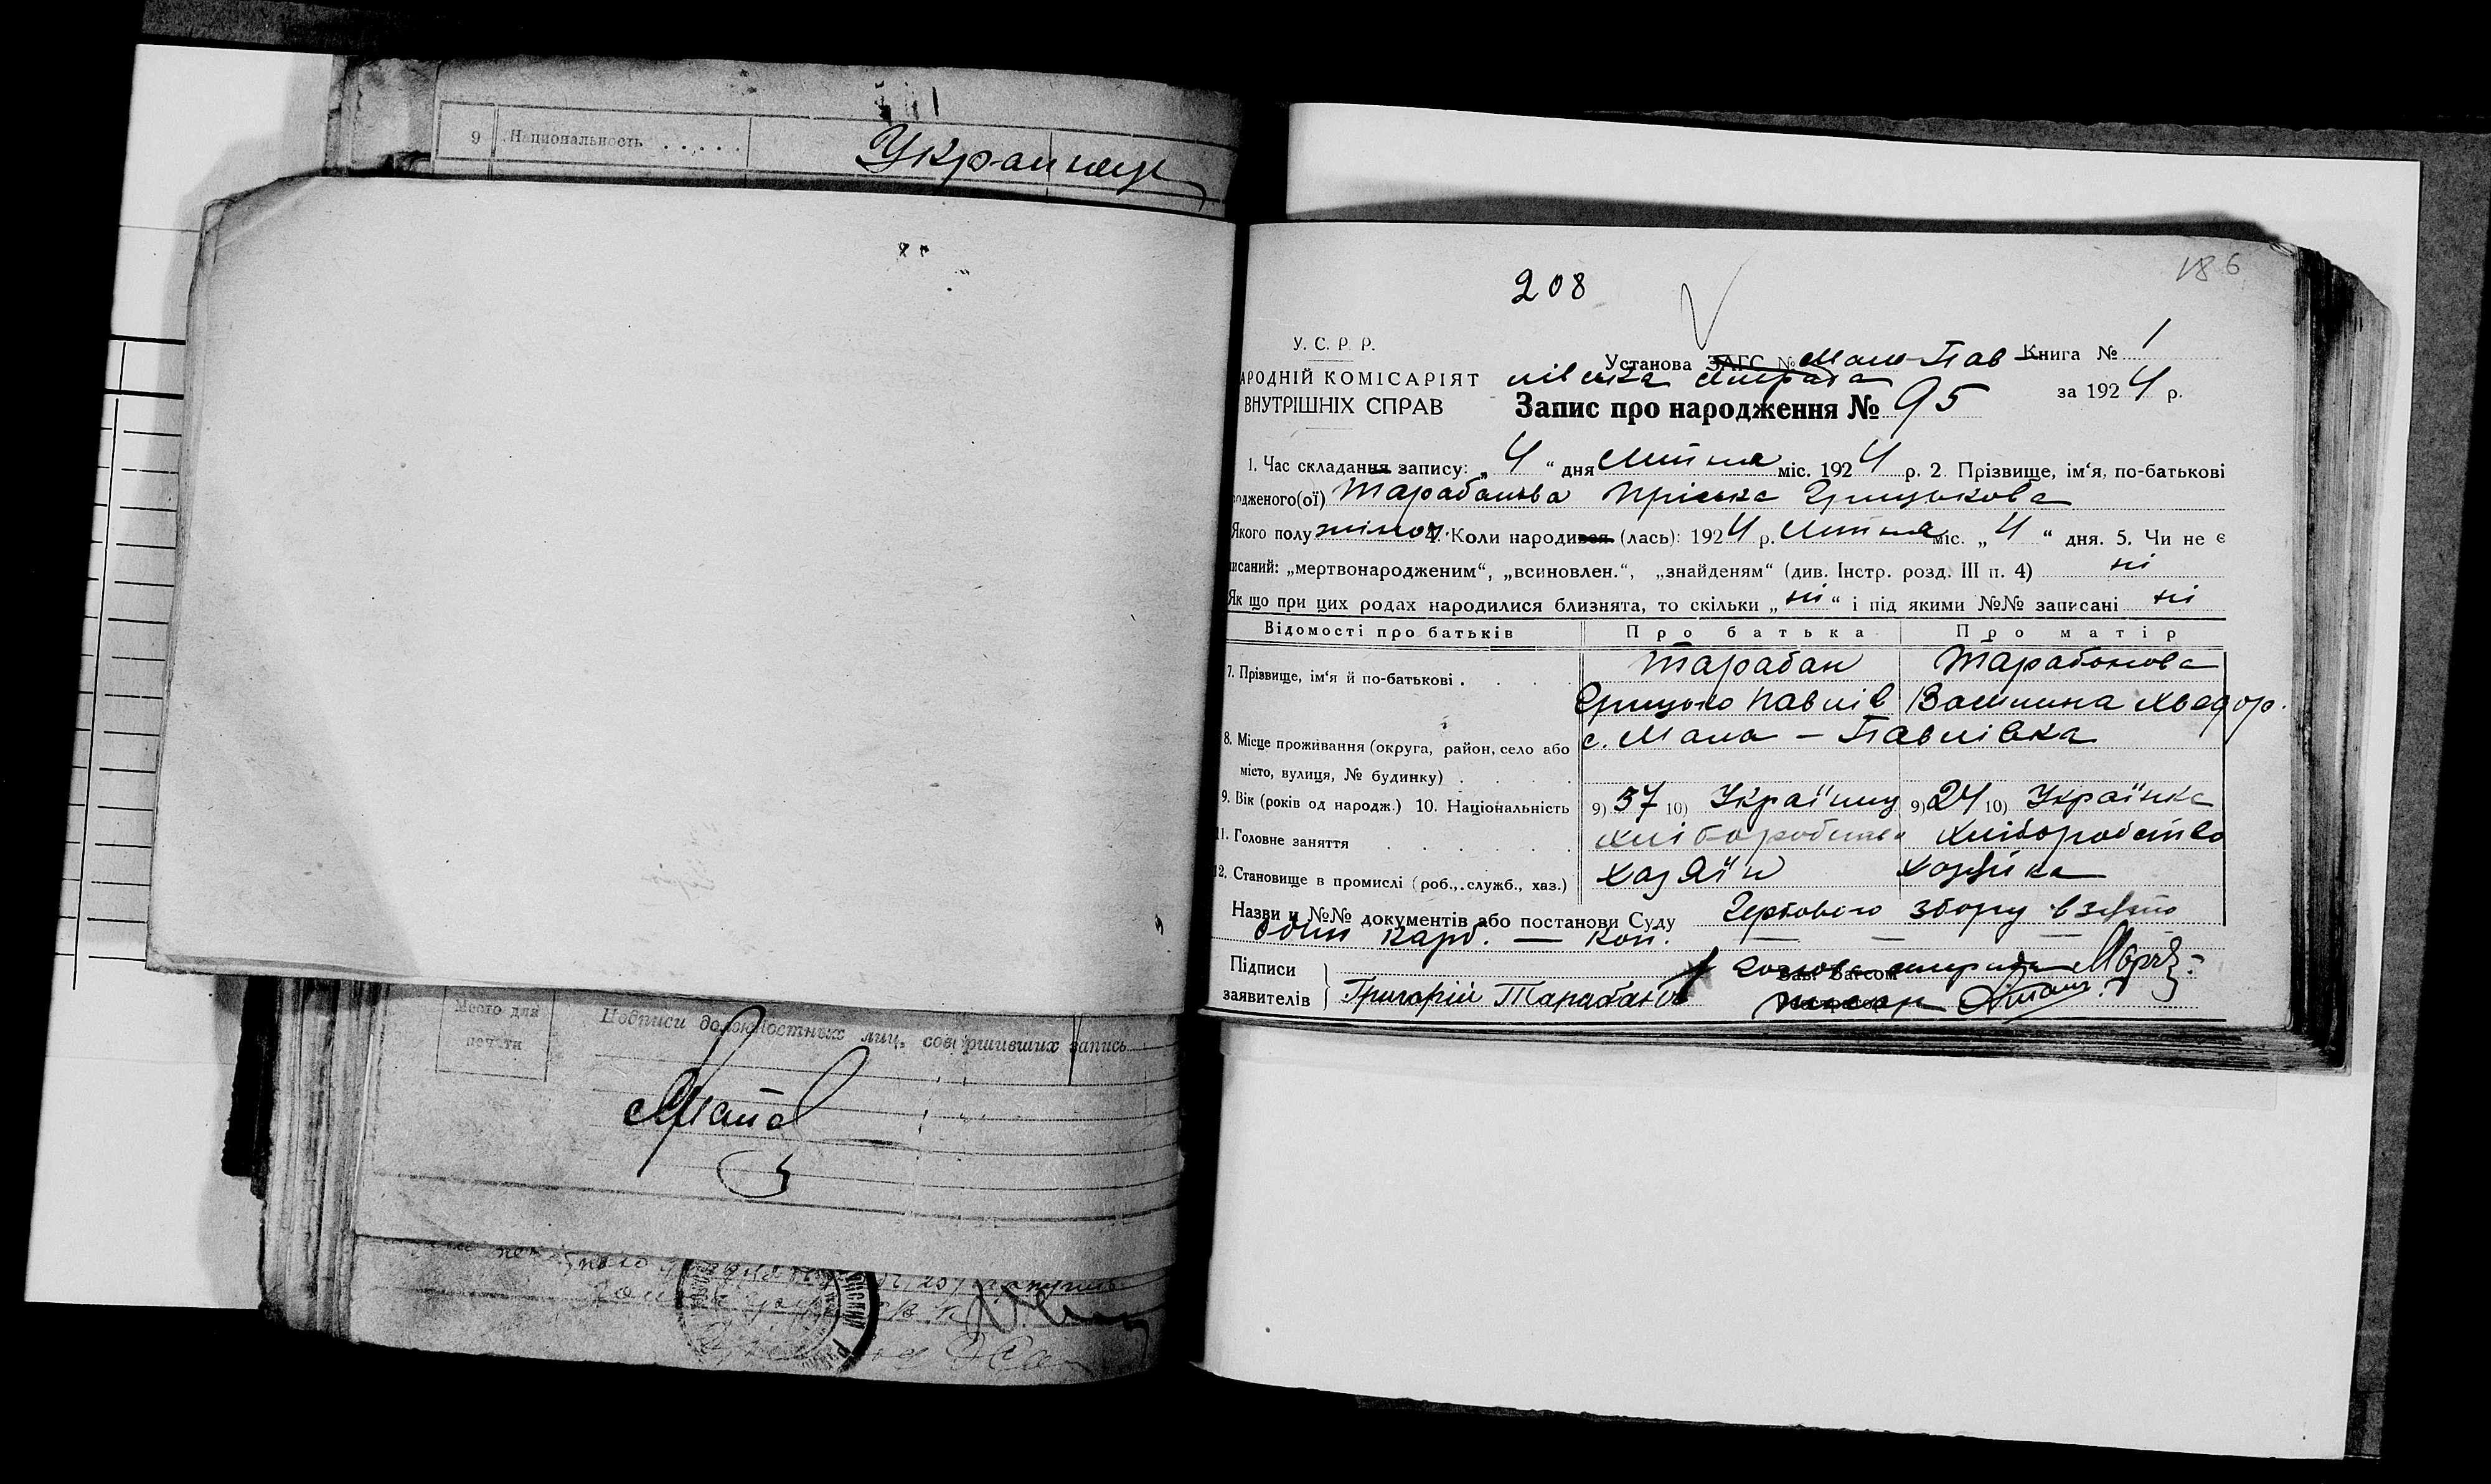 9 Национальность . . . . . Украинец
Место для печати
Подписи должностных лиц, совершивших запись
208
186
У. С. Р. Р.
АРОДНІЙ КОМІСАРІЯТ
ВНУТРІШНІХ СПРАВ
Установа ЗАГС № Мало-Пав Книга № 1
лівська сільрада
за 1924 р.
Запис про народження № 95
1. Час складання запису: „4“ дня Липня міс. 1924 р. 2. Прізвище, ім‘я, по-батькові
одженого(ої) Тарабанова Пріська Грицькова
Якого полу жіноч. 4. Коли народився (лась): 1924 р. Липня міс. „4“ дня. 5. Чи не є
писаний: „мертвонародженим“, „всиновлен.“, „знайденям“ (див. Інстр. розд. III п. 4) ні
Як що при цих родах народилися близнята, то скільки „ні“ і під якими №№ записані ні
Відомості про батьків Про батька Про матір
7. Прізвище, ім‘я й по-батькові . . . . Тарабан Тарабанова
Грицько Павлів Василина Хведор.
8. Місце проживання (округа, район, село або с. Мало – Павлівка
місто, вулиця, № будинку) . . . .
9. Вік (років од народж.) 10. Національність 9) 37 10) Українец 9) 24 10) Українка
11. Головне заняття . . . . . . хліборобство хліборобство
12. Становище в промислі (роб., служб., хаз.) хазяїн хазяйка
Назви й №№ документів або постанови Суду Гербового збору взято
один карб. — коп. — — —
Підписи
заявителів Григорій Тарабан
Голова сільради
Зав. Загсом
писар